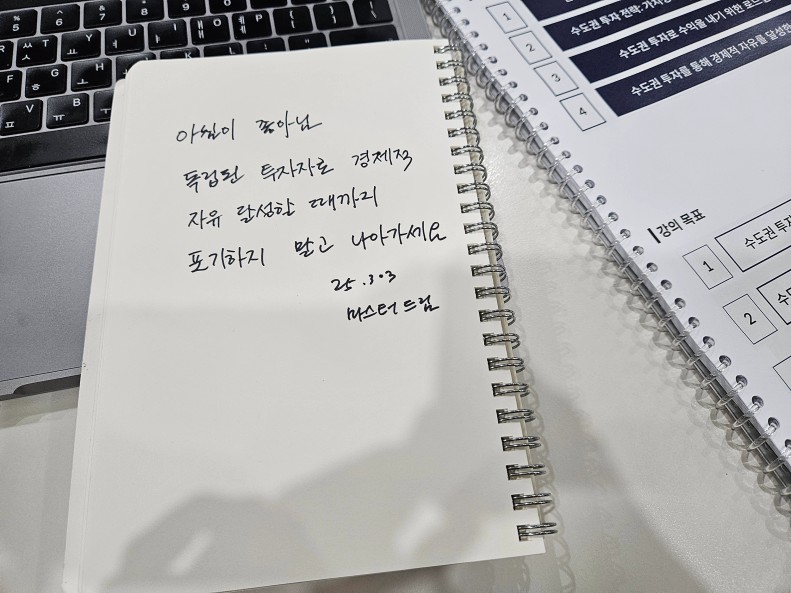 아침이 좋아님
독립된 투자자로 경제적
자유 달성할 때까지
포기하지 말고 나아가세요
25.3.3
마스터드림
1
2
3
4
수도권 투자 전략:
수도권 투자로 수익을 내기 위한
수도권 투자를 통해 경제적 자유를 달성한
강의 목표
1
수도권 투자
2
수도권
% 5
^ 6
& 7
* 8
( 9
) 0
R ㄱ
T ㅅ
Y ㅛ
U ㅕ
I ㅑ
O ㅐ
P ㅔ
G ㅎ
H ㅗ
J ㅓ
K ㅏ
L ㅣ
V ㅍ
B ㅠ